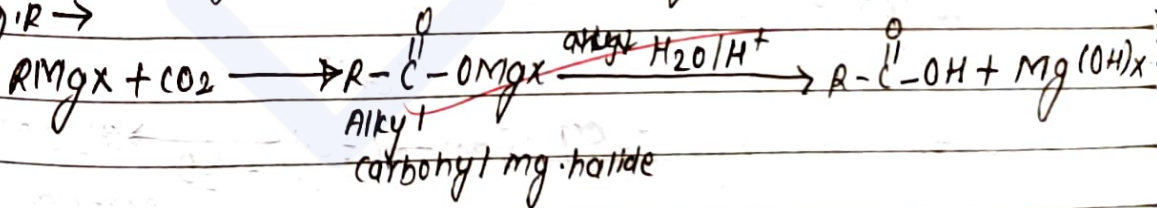 .R →
RMgx + CO2 ⟶ R-C(=O)-OMgx ⟶ H2O/H+ ⟶ R-C(=O)-OH + Mg(OH)x
Alkyl
carbonyl mg.halide